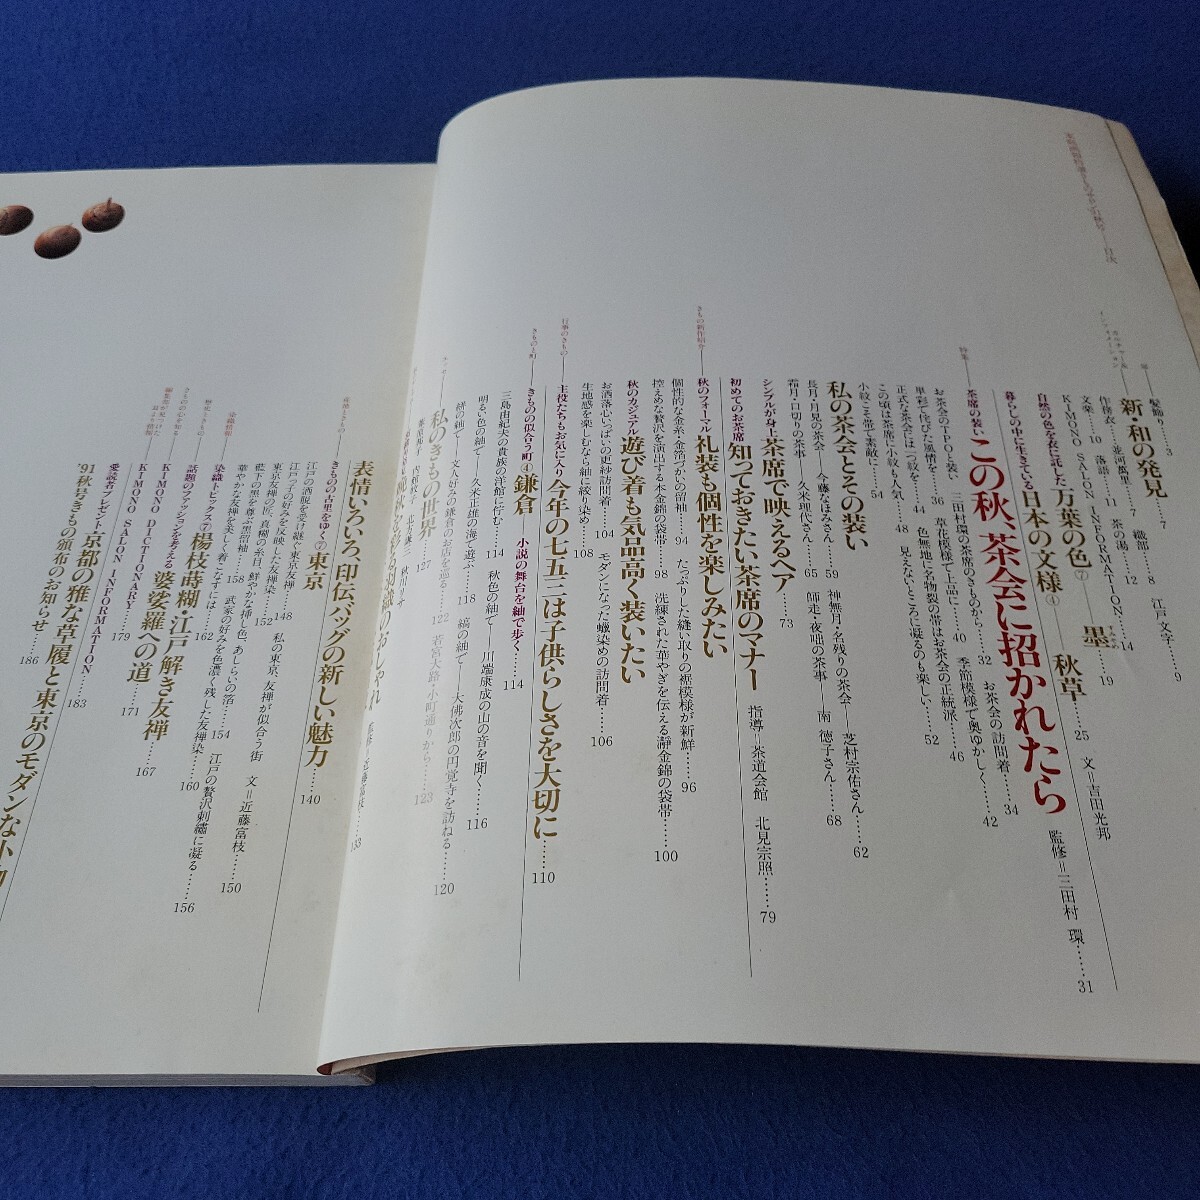 髪飾り……3
新・和の発見……7
織部……8 江戸文字……9
作務衣──並河萬里……7
文楽……10 落語……11 茶の湯……12
KIMONO SALON INFORMATION……14
自然の色を衣に託した 万葉の色⑦ 墨……19
暮らしの中に生きている 日本の文様④ 秋草……25 文＝吉田光邦
特集
茶席の装い この秋、茶会に招かれたら 監修＝三田村 環……31
三田村環の茶席のきものから……32 お茶会の訪問着……34
お茶会のTPOと装い……36 草花模様で上品に……40 季節模様で奥ゆかしく……42
単彩で侘びた風情を……44 色無地に名物裂の帯はお茶会の正統派……46
正式な茶会には一つ紋を……48 見えないところに凝るのも楽しい……52
この頃は茶席に小紋も人気……54
小紋こそ帯で素敵に
私の茶会とその装い
長月・月見の茶会──今藤なほみさん……59 神無月・名残りの茶会──芝村宗佑さん……62
霜月・口切りの茶事──久米現代さん……65 師走・夜咄の茶事──南 徳子さん……68
シンプルが身上 茶席で映えるヘア……73
初めてのお茶席 知っておきたい茶席のマナー 指導＝茶道会館 北見宗照……79
きもの新作紹介
秋のフォーマル 礼装も個性を楽しみたい
個性的な金糸・金箔づかいの留袖……94 たっぷりした縫い取りの裾模様が新鮮……96
控えめな贅沢を演出する本金錦の袋帯……98 洗練された華やぎを伝える瀞金錦の袋帯……100
秋のカジュアル 遊び着も気品高く装いたい
お洒落心いっぱいの更紗訪問着……104 モダンになった蠟染めの訪問着……106
生地感を楽しむなら紬に絞り染め……108
行事のきもの
主役たちもお気に入り 今年の七五三は子供らしさを大切に……110
きものと町
きものの似合う町④ 鎌倉 小説の舞台を紬で歩く……114
三島由紀夫の貴族の洋館に佇む……114 秋色の紬で──川端康成の山の音を聞く……116
明るい色の紬で──久米正雄の海で遊ぶ……118 縞の紬で──大佛次郎の円覚寺を訪ねる……120
絣の紬で──文人好みの鎌倉の老店を巡る……122 若宮大路・小町通りから……123
私のきもの世界……127
表情いろいろ、印伝バッグの新しい魅力……140
きものの古里をゆく⑦ 東京
江戸の洒脱を受け継ぐ東京友禅……148 私の東京、友禅が似合う街 文＝近藤富枝……150
江戸っ子の好みを反映した友禅染……152
東京友禅の匠、真糊の糸目、鮮やかな挿し色、あしらいの箔……154 江戸の贅沢刺繡に凝る……156
藍下の黒を尊ぶ黒留袖……158 武家の好みを色濃く残した友禅染……160
華やかな友禅を美しく着こなすには……162
染織情報
染織トピックス⑦ 楊枝蒔糊・江戸解き友禅……167
話題のファッションを考える 婆娑羅への道……171
KIMONO DICTIONARY……179
KIMONO SALON INFORMATION……183
愛読者プレゼント 京都の雅な草履と東京のモダンな小物
'91秋号きもの頒布のお知らせ……186